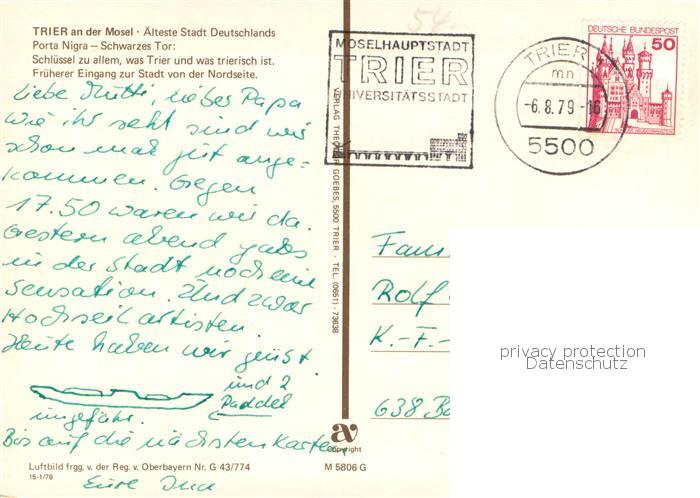 TRIER an der Mosel · Älteste Stadt Deutschlands
Porta Nigra — Schwarzes Tor:
Schlüssel zu allem, was Trier und was trierisch ist.
Früherer Eingang zur Stadt von der Nordseite.
Liebe Mutti, lieber Papa
wie ihr seht sind wir
schon mal gut ange-
kommen. Gegen
17.50 waren wir da.
Gestern abend gabs
in der Stadt noch eine
Sensation. Und zwar
Hochseilartisten.
Heute haben wir
und 2
Paddel
ungefähr.
Bis auf die nächsten Karten
Eure
Luftbild frgg. v. der Reg. v. Oberbayern Nr. G 43/774
15-1/79
M 5806 G
Copyright
VERLAG THEODOR GOEBES, 5500 TRIER · TEL. (0651) - 73638
54.
MOSELHAUPTSTADT
TRIER
UNIVERSITÄTSSTADT
TRIER
mn
-6.8.79-16
5500
DEUTSCHE BUNDESPOST
50
Fam
Rolf
K.-F.-
638 Ba
privacy protection
Datenschutz